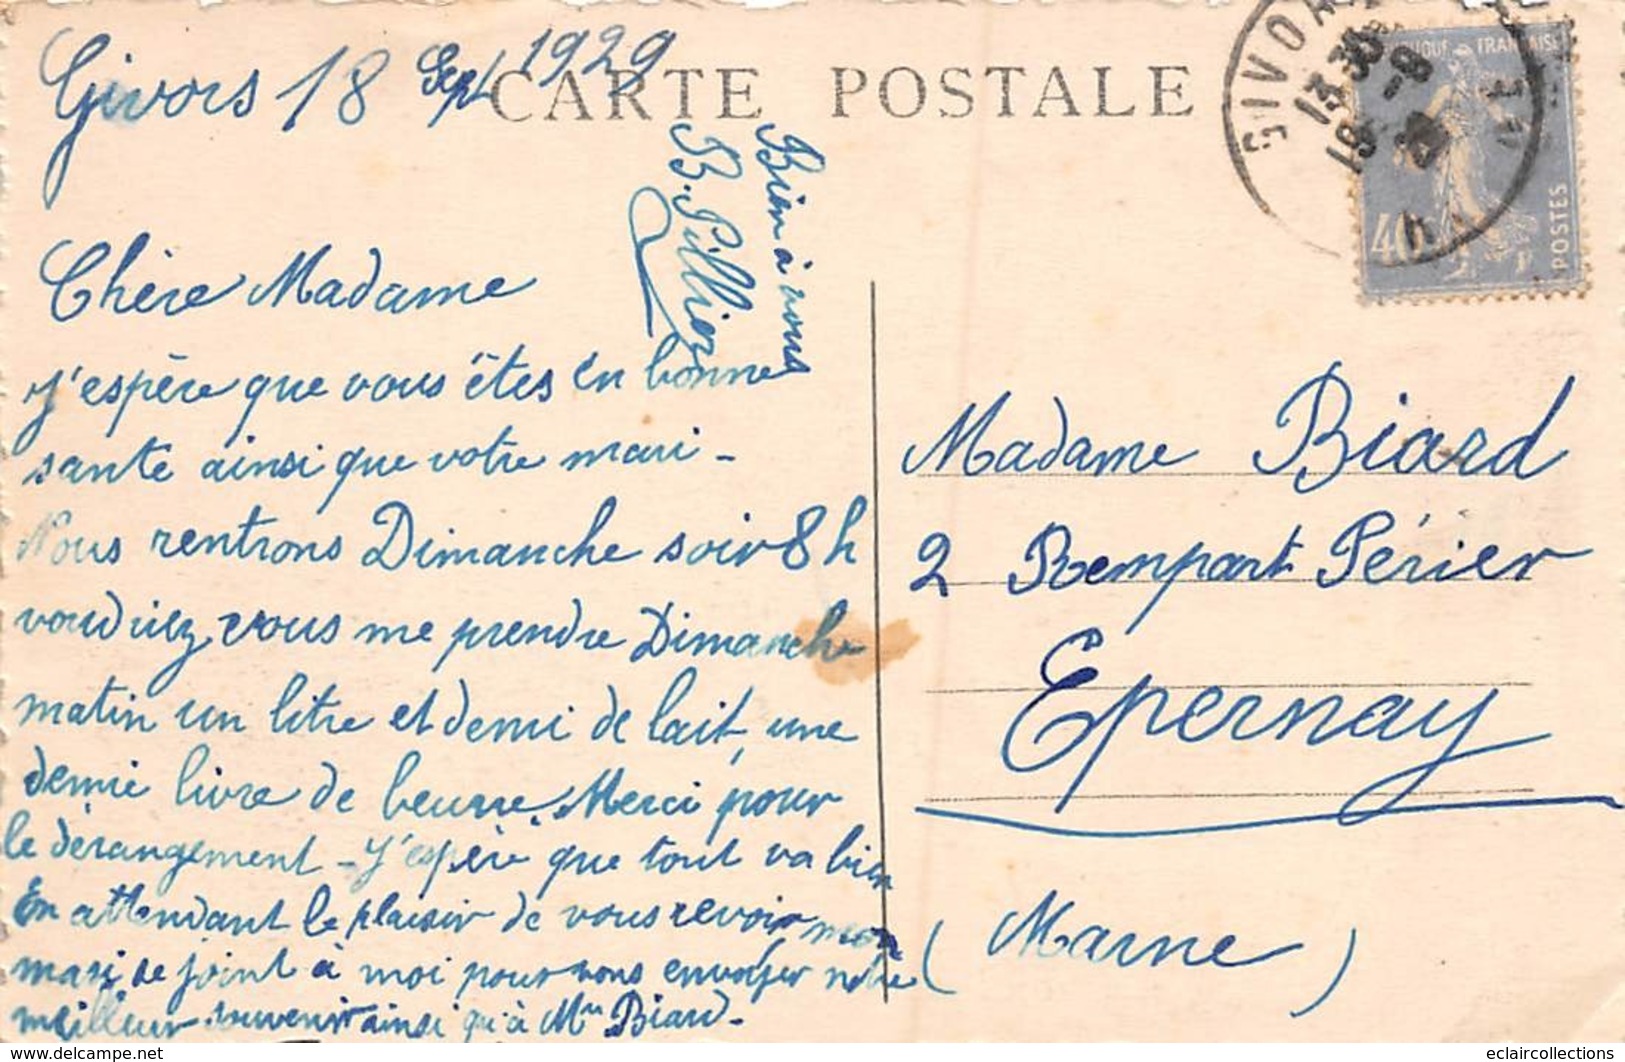 Givors 18 Sept 1929
CARTE POSTALE
Bien à vous
B. Pilliez
GIVORS
13 30
18 -9
29
RÉPUBLIQUE FRANÇAISE
40
POSTES
Chère Madame
j'espère que vous êtes en bonne
santé ainsi que votre mari -
Nous rentrons Dimanche soir 8 h
voudriez vous me prendre Dimanche
matin un litre et demi de lait, une
demie livre de beurre. Merci pour
le dérangement - J'espère que tout va bien
En attendant le plaisir de vous revoir mon
mari se joint à moi pour vous envoyer notre
meilleur souvenir ainsi qu'à Mr Biard -
Madame Biard
2 Rempart Périer
Epernay
(Marne)
www.delcampe.net
eclaircollections